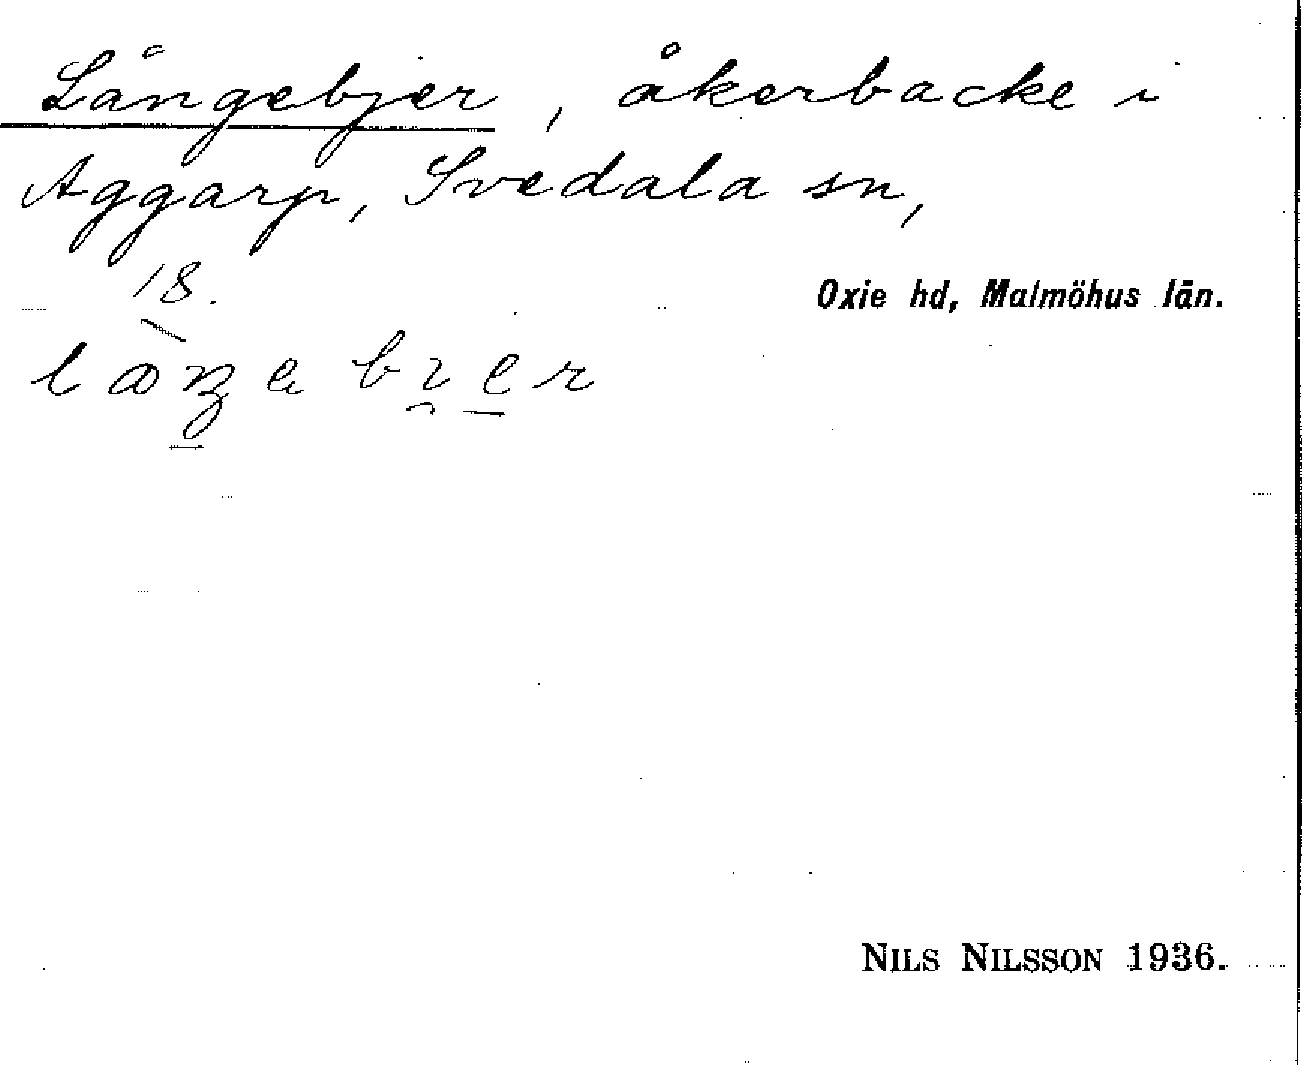 Långebjer, åkerbacke i
Aggarp, Svedala sn,
18.
Oxie hd, Malmöhus län.
NILS NILSSON 1936.